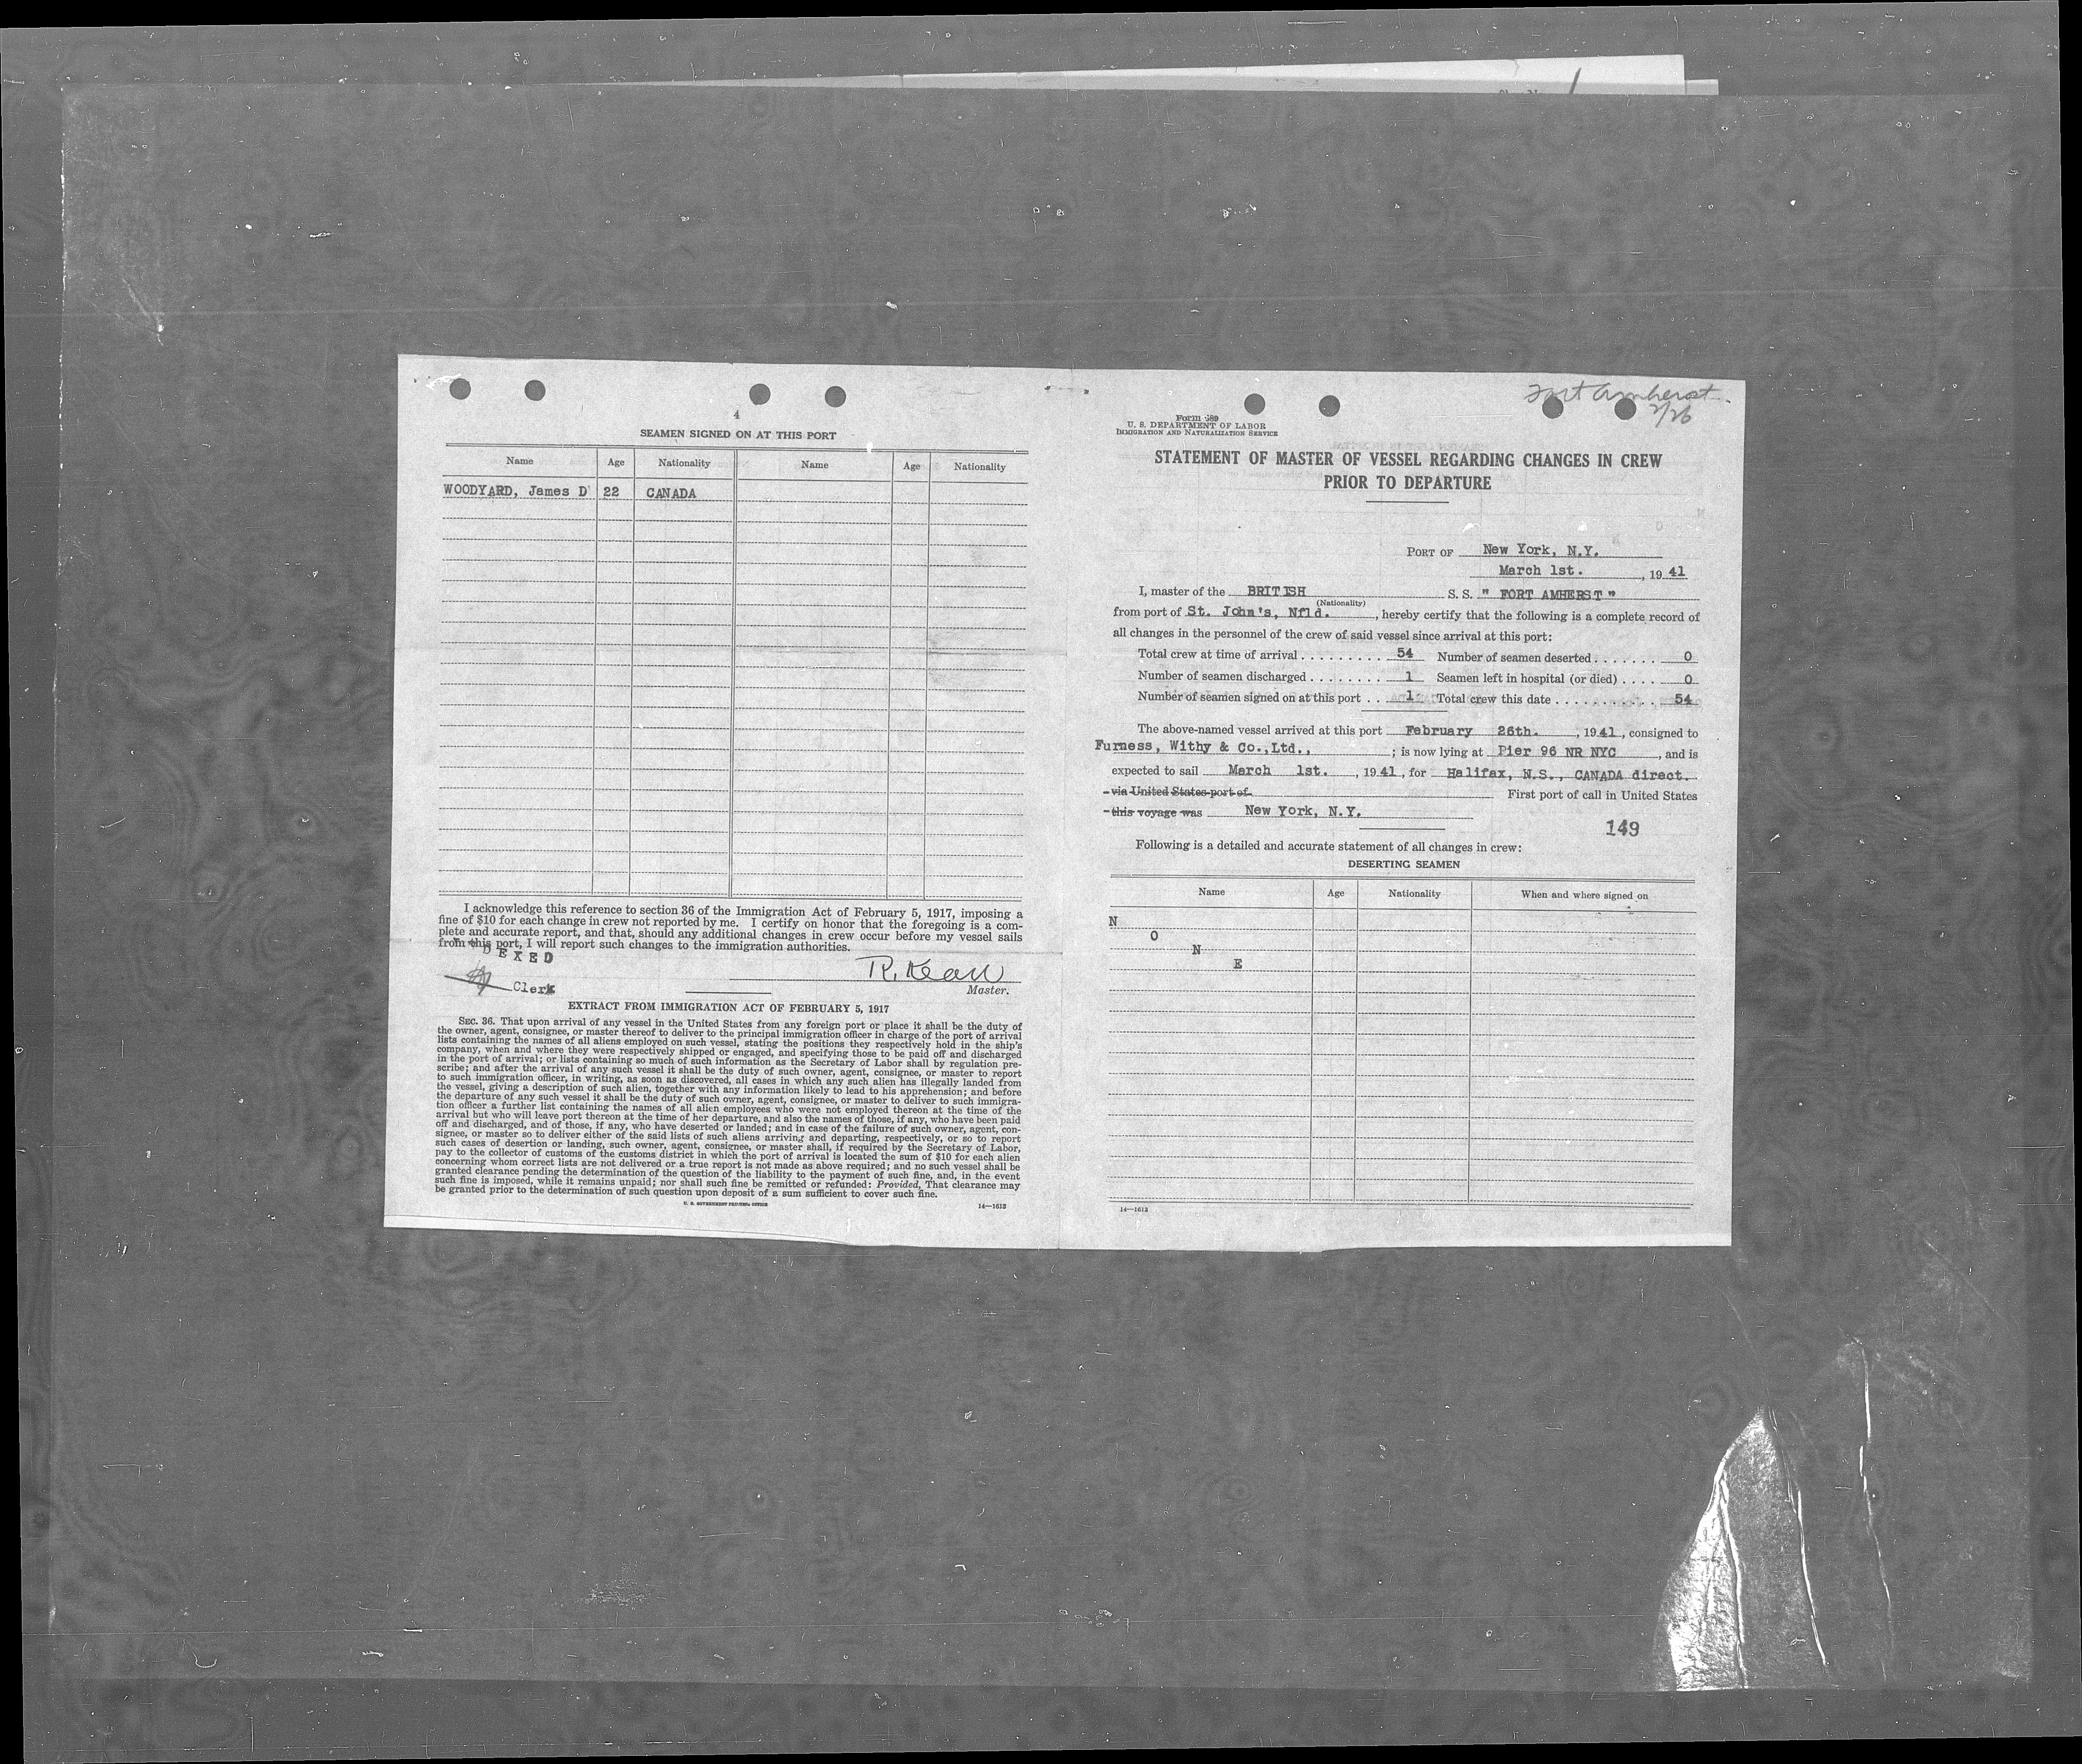 4
SEAMEN SIGNED ON AT THIS PORT
Name Age Nationality Name Age Nationality
WOODYARD, James D 22 CANADA
I acknowledge this reference to section 36 of the Immigration Act of February 5, 1917, imposing a
fine of $10 for each change in crew not reported by me. I certify on honor that the foregoing is a com-
plete and accurate report, and that, should any additional changes in crew occur before my vessel sails
from this port, I will report such changes to the immigration authorities.
DEXED
R. Kean
Clerk
Master.
EXTRACT FROM IMMIGRATION ACT OF FEBRUARY 5, 1917
SEC. 36. That upon arrival of any vessel in the United States from any foreign port or place it shall be the duty of
the owner, agent, consignee, or master thereof to deliver to the principal immigration officer in charge of the port of arrival
lists containing the names of all aliens employed on such vessel, stating the positions they respectively hold in the ship's
company, when and where they were respectively shipped or engaged, and specifying those to be paid off and discharged
in the port of arrival; or lists containing so much of such information as the Secretary of Labor shall by regulation pre-
scribe; and after the arrival of any such vessel it shall be the duty of such owner, agent, consignee, or master to report
to such immigration officer, in writing, as soon as discovered, all cases in which any such alien has illegally landed from
the vessel, giving a description of such alien, together with any information likely to lead to his apprehension; and before
the departure of any such vessel it shall be the duty of such owner, agent, consignee, or master to deliver to such immigra-
tion officer a further list containing the names of all alien employees who were not employed thereon at the time of the
arrival but who will leave port thereon at the time of her departure, and also the names of those, if any, who have been paid
off and discharged, and of those, if any, who have deserted or landed; and in case of the failure of such owner, agent, con-
signee, or master so to deliver either of the said lists of such aliens arriving and departing, respectively, or so to report
such cases of desertion or landing, such owner, agent, consignee, or master shall, if required by the Secretary of Labor,
pay to the collector of customs of the customs district in which the port of arrival is located the sum of $10 for each alien
concerning whom correct lists are not delivered or a true report is not made as above required; and no such vessel shall be
granted clearance pending the determination of the question of the liability to the payment of such fine, and, in the event
such fine is imposed, while it remains unpaid; nor shall such fine be remitted or refunded: Provided, That clearance may
be granted prior to the determination of such question upon deposit of a sum sufficient to cover such fine.
U. S. GOVERNMENT PRINTING OFFICE 14—1613
Fort Amherst
2/26
Form 689
U. S. DEPARTMENT OF LABOR
IMMIGRATION AND NATURALIZATION SERVICE
STATEMENT OF MASTER OF VESSEL REGARDING CHANGES IN CREW
PRIOR TO DEPARTURE
PORT OF New York, N.Y.
March 1st. , 19 41
I, master of the BRITISH S. S. " FORT AMHERST "
(Nationality)
from port of St. John's, Nfld. , hereby certify that the following is a complete record of
all changes in the personnel of the crew of said vessel since arrival at this port:
Total crew at time of arrival . . . . . . . . . 54 Number of seamen deserted . . . . . . . 0
Number of seamen discharged . . . . . . . . 1 Seamen left in hospital (or died) . . . . 0
Number of seamen signed on at this port . . 1 Total crew this date . . . . . . . . . . . 54
The above-named vessel arrived at this port February 26th. , 1941, consigned to
Furness, Withy & Co.,Ltd., ; is now lying at Pier 96 NR NYC , and is
expected to sail March 1st. , 1941, for Halifax, N.S., CANADA direct.
via United States port of First port of call in United States
this voyage was New York, N.Y.
149
Following is a detailed and accurate statement of all changes in crew:
DESERTING SEAMEN
Name Age Nationality When and where signed on
N
O
N
E
14—1613